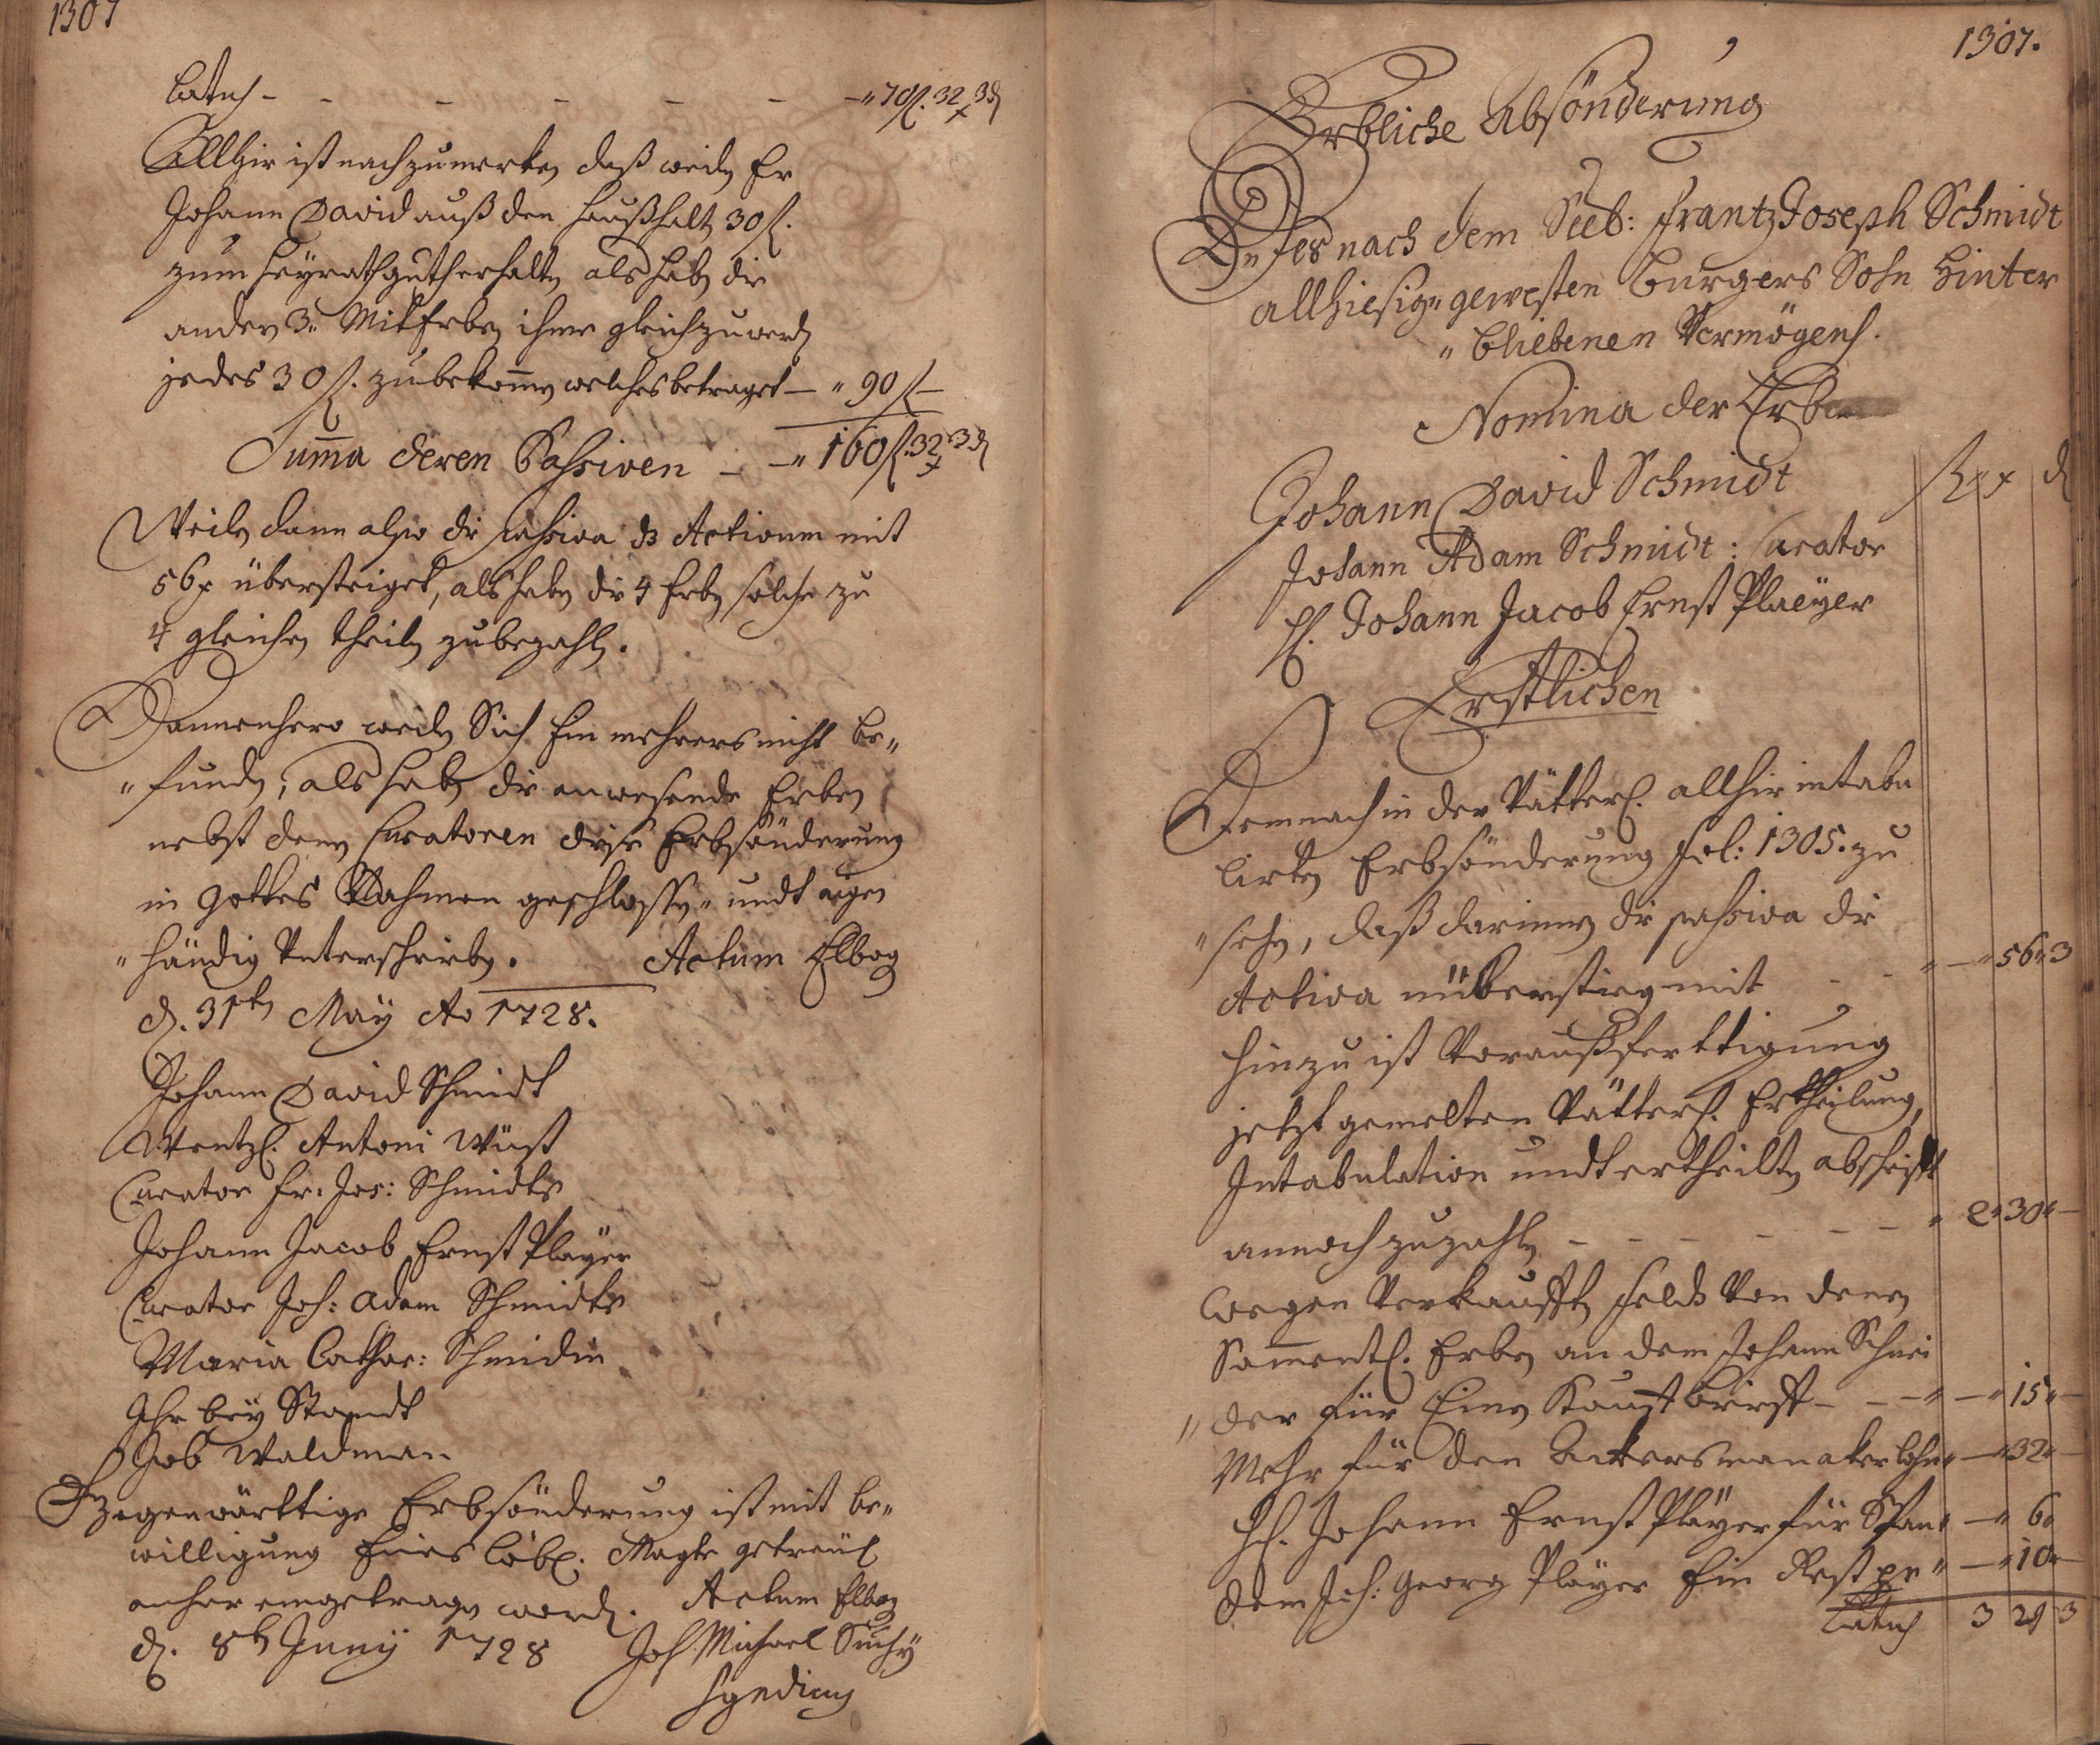 1307
Latus - - - - - - -"70fl. 32x 3d
Allhir ist nachzumerken daß weiln Er
Johann David auß den Haußhalt 30fl.
zum Heyrathgutherhalten als haben die
andere 3." MitErben ihme gleichzuwerden
jedes 30fl. zubekommen welches betraget - "90fl -
Summa deren Passiven - -"160fl. 32x 3d
Weiln dann also die passiva das Activum mit
56x übersteiget, als haben die 4 Erben solche zu
4 gleichen theiln zubezahln.
Dannenhero weiln Sich Ein mehrers nicht be"
"funden, als haben die anwesende Erben
nebst denen Curatoren diese Erbsönderung
in Gottes Nahmen geschlossen" undt aigen
"händig Unterschrieben. Actum Elbog
d. 31ten May Ao 1728.
Johann David Schmidt
Wentzl. Antoni Wüst
Curator Fr: Jos: Schmidts
Johann Jacob Ernst Player
Curator Joh: Adam Schmidts
Maria Cathar: Schmidin
Ihr bey Standt
Job Waldman
Gegenwärttige Erbsönderung ist mit be"
willigung Eines löbl. Magts getreül
anher eingetragen worden. Actum Elbog
d. 8ten Juny 1728 Joh Michael Suchÿ
Syndicus
1307.
Erbliche Absönderung
Des nach dem Seel: Frantz Joseph Schmidt
allhiesig" gewesten Burgers Sohn Hinter
"bliebenen Vermögens.
Nomina der Erben
fl x d
Johann David Schmidt
Johann Adam Schmidt: Curator
H. Johann Jacob Ernst Plaeyer
Erstlichen
Demnach in der Vätterl. allhir intabu
lirten Erbsönderung fol: 1305. zu
"sehen, daß darinnen die passiva die
Activa nüberstieg mit - - " - "56"3
hinzu ist Voraußfertttigung
jetzt gemelten Vätterl. Ertheilung,
Intabulation undt ertheilten abschrifft
annoch zuzahln - - - - - - " 2"30"-
Wegen Verkaufften feldts Von denen
Sammentl. Erben an dem Johann Schnei
"der für Einen Kauffbrieff - - -" -"15"-
Mehr für den Ackersman akerlohn" -"32"-
H. Johann Ernst Pläyer für Span" -" 6"
dem Joh: Georg Player Ein Rest pr" -"10"-
Latus 3 29 3